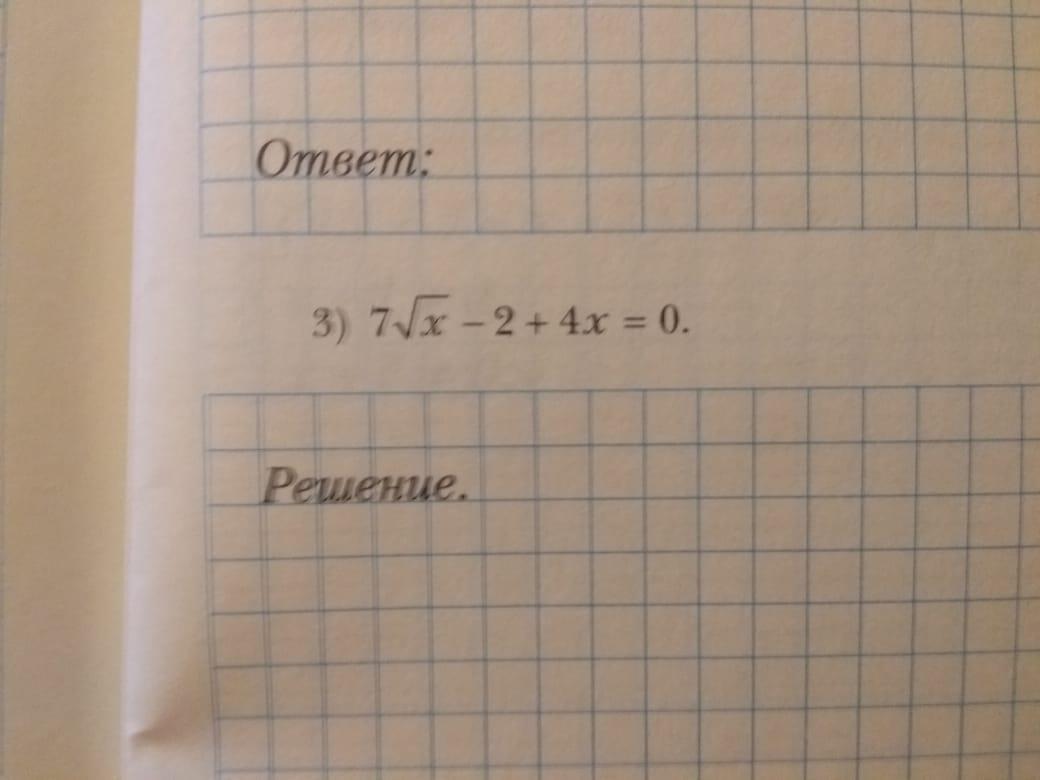 Ответ:
3) 7√x − 2 + 4x = 0.
Решение.